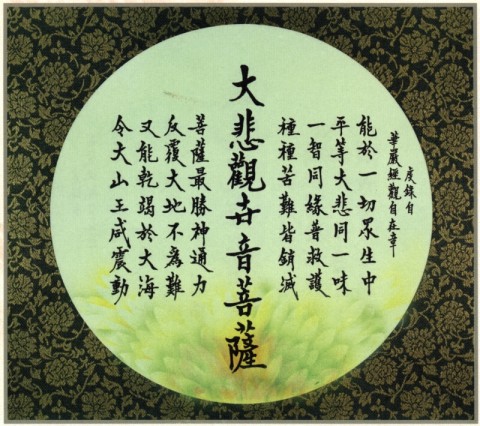 虔錄自
華嚴經觀自在章
能於一切眾生中
平等大悲同一味
一智同緣普救護
種種苦難皆銷滅
大悲觀世音菩薩
菩薩最勝神通力
反覆大地不為難
又能乾竭於大海
令大山王咸震動